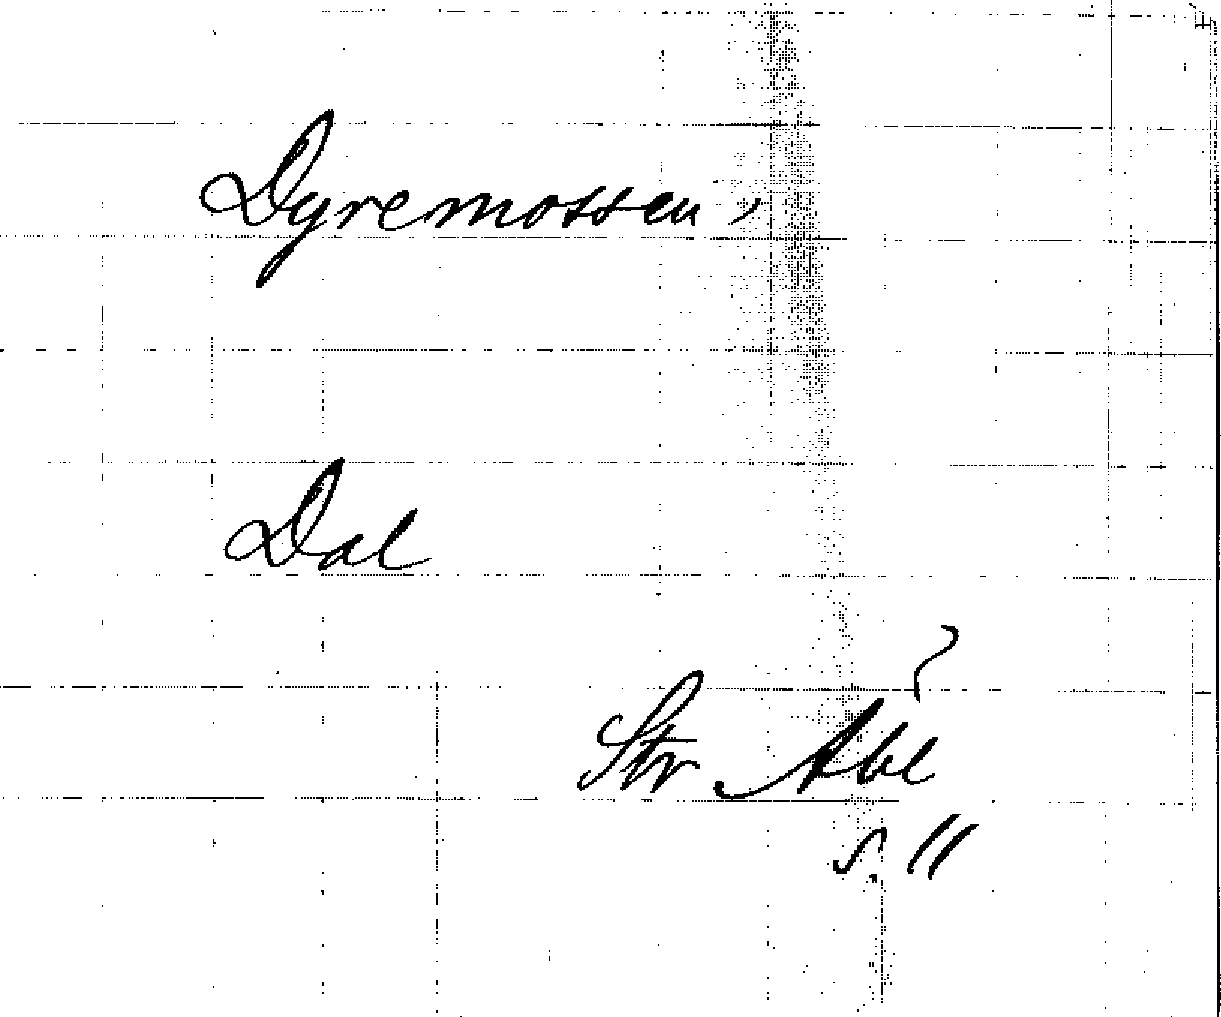 Dyremossen,
Dal
?
Str Abl
s. 11